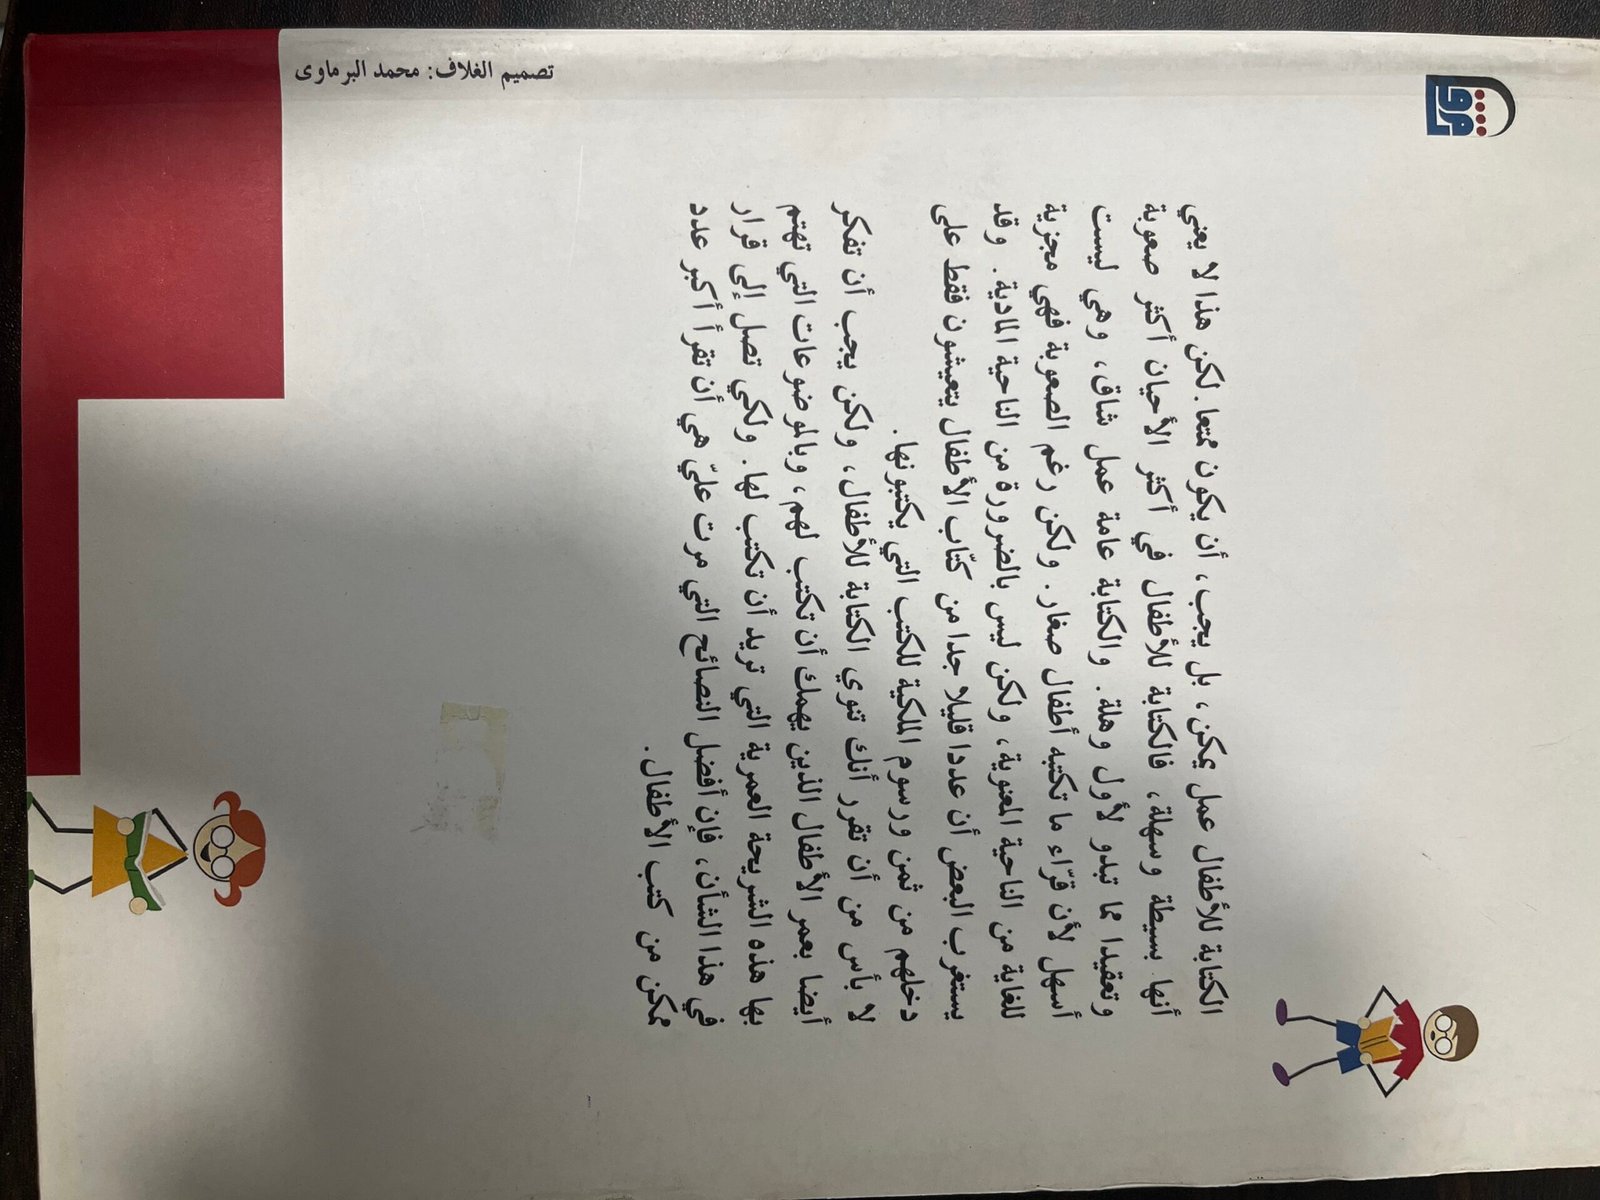 الكتابة للأطفال عمل يمكن، بل يجب، أن يكون ممتعا. لكن هذا لا يعني
أنها بسيطة وسهلة، فالكتابة للأطفال في أكثر الأحيان أكثر صعوبة
وتعقيدا مما تبدو لأول وهلة. والكتابة عامة عمل شاق، وهي ليست
أسهل لأن قرّاء ما تكتبه أطفال صغار. ولكن رغم الصعوبة فهي مجزية
للغاية من الناحية المعنوية، ولكن ليس بالضرورة من الناحية المادية. وقد
يستغرب البعض أن عددا قليلا جدا من كتّاب الأطفال يتعيشون فقط على
دخلهم من ثمن ورسوم الملكية للكتب التي يكتبونها.
لا بأس من أن تقرر أنك تنوي الكتابة للأطفال، ولكن يجب أن تفكر
أيضا بعمر الأطفال الذين يهمك أن تكتب لهم، وبالموضوعات التي تهتم
بها هذه الشريحة العمرية التي تريد أن تكتب لها. ولكي تصل إلى قرار
في هذا الشأن، فإن أفضل النصائح التي مرت عليّ هي أن تقرأ أكبر عدد
ممكن من كتب الأطفال.
تصميم الغلاف: محمد البرماوى